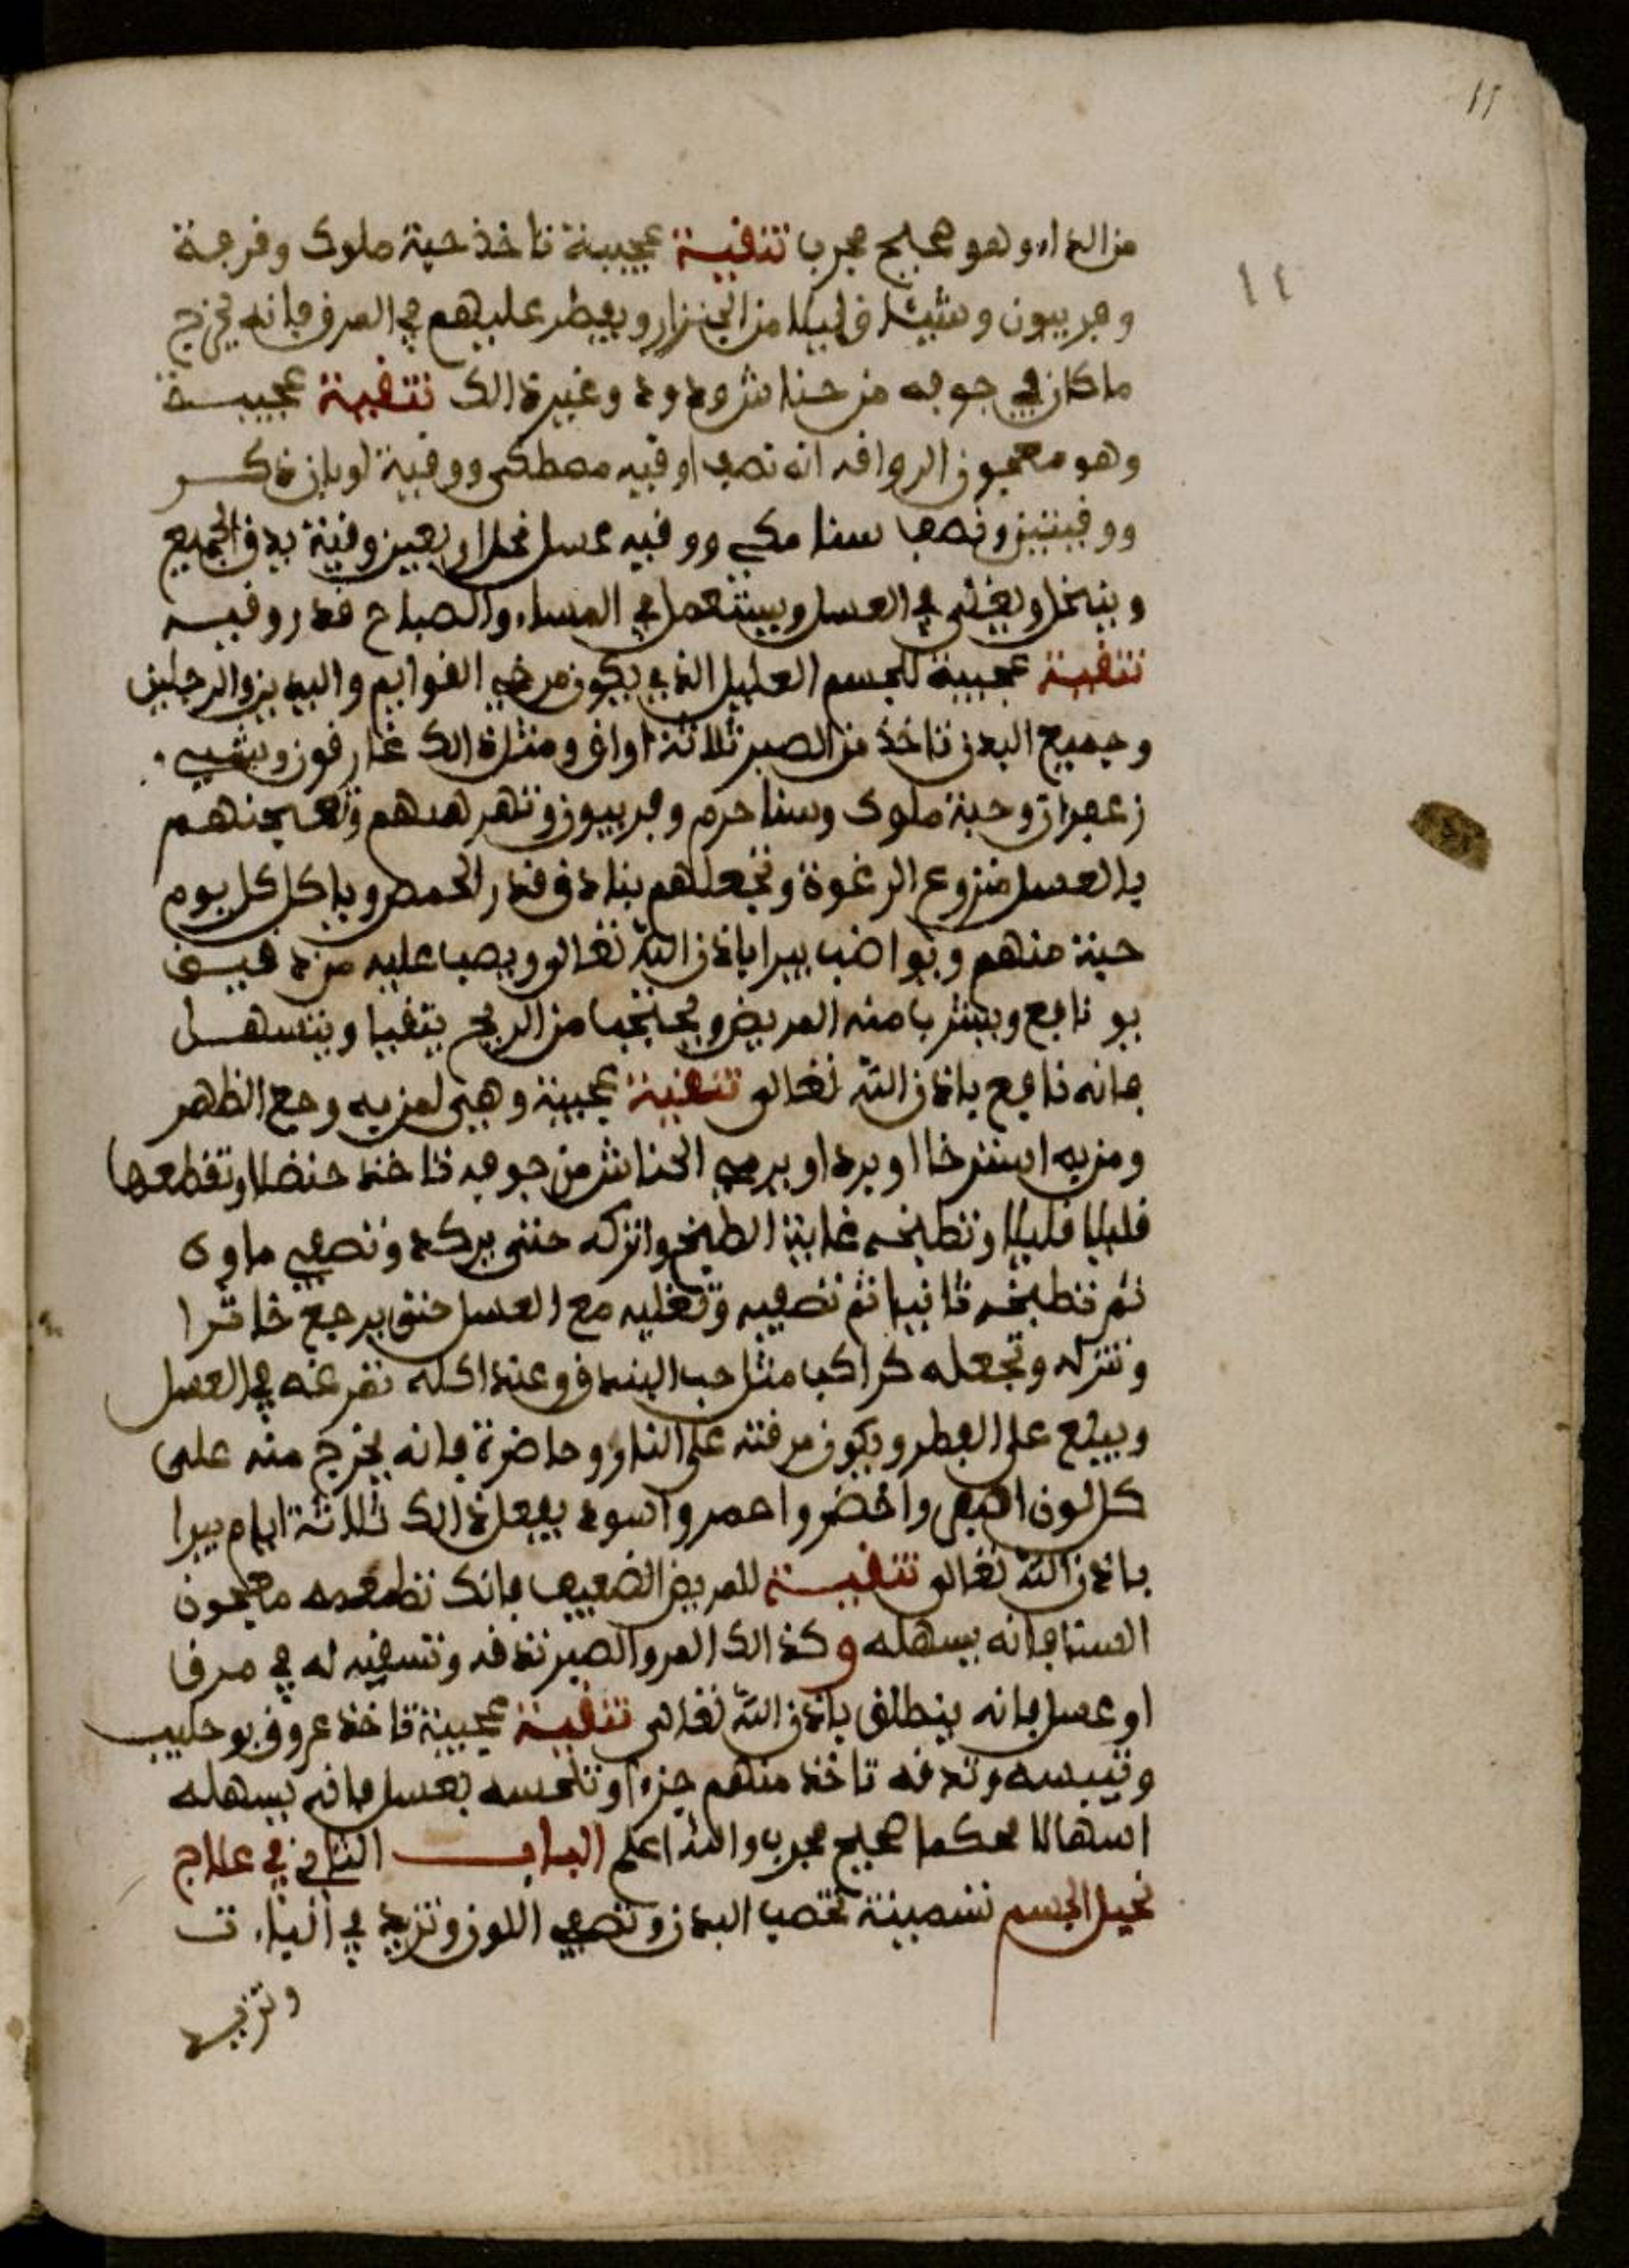 11
١٢
من الداء وهو صحيح مجرب تنقية عجيبة تاخذ حبة ملوك وفرجنة
وفربيون وشيئا قليلا من الجنزار ويفطر عليهم في المرق فانه يخرج
ما كان في جوفه من حناش ودود وغير ذالك تنقية عجيبة
وهو معجون الروافد انه نصف اوقيه مصطكى ووقية لوبان ذكر
ووقيتين ونصف سنا مكي ووقيه عسل نحل اربعين وقية يدق الجميع
وينخل ويغلى في العسل ويستعمل في المساء والصباح قدر وقيه
تنقية عجيبة للجسم العليل الذي يكون مرخي القوايم واليدين والرجلين
وجميع البدن تاخذ من الصبر ثلاثة اواق ومثل ذالك غارقون وشيي
زعفران وحبة ملوك وسنا حرم وفربيون وتهرهدهم وتعجنهم
بالعسل منزوع الرغوة وتجعلهم بنادق قدر الحمص وياكل كل يوم
حبة منهم ويواضب يبرا باذن الله تعالى ويصب عليه من دقيق
بو نافع ويشرب منه المريض ويحتجب من الريح يتقيا ويتسهل
فانه نافع باذن الله تعالى تنقية عجيبة وهي لمن به وجع الظهر
ومن به استرخا او برد او يرمي الحناش من جوفه تاخذ حنضلا وتقطعها
قليلا قليلا وتطبخه غاية الطبخ واتركه حتى يركد وتصفي ماوه
ثم تطبخه ثانيا ثم تصفيه وتغليه مع العسل حتى يرجع خاثرا
وتنزله وتجعله كراكب مثل حب البندق وعند اكله تفرغه في العسل
ويبلع على الفطر ويكون مرقته على النار وحاضرة فانه يخرج منه على
كل لون اصفر واخضر واحمر واسود يفعل ذالك ثلاثة ايام يبرا
باذن الله تعالى تنقية للمريض الضعيف فانك تطعمه معجون
السنا فانه يسهله وكذالك المر والصبر تدقه وتسقيه له في مرقا
او عسل فانه ينطلق باذن الله تعالى تنقية عجيبة تاخذ عروق بو حليب
وتيبسه وتدقه تاخذ منهم جزءا وتلحسه بعسل فانه يسهله
اسهالا محكما صحيح مجرب والله اعلم الباب الثاني في علاج
نحيل الجسم تسمينة تخصب البدن وتصفي اللون وتزيد في الباءت
وتزيد